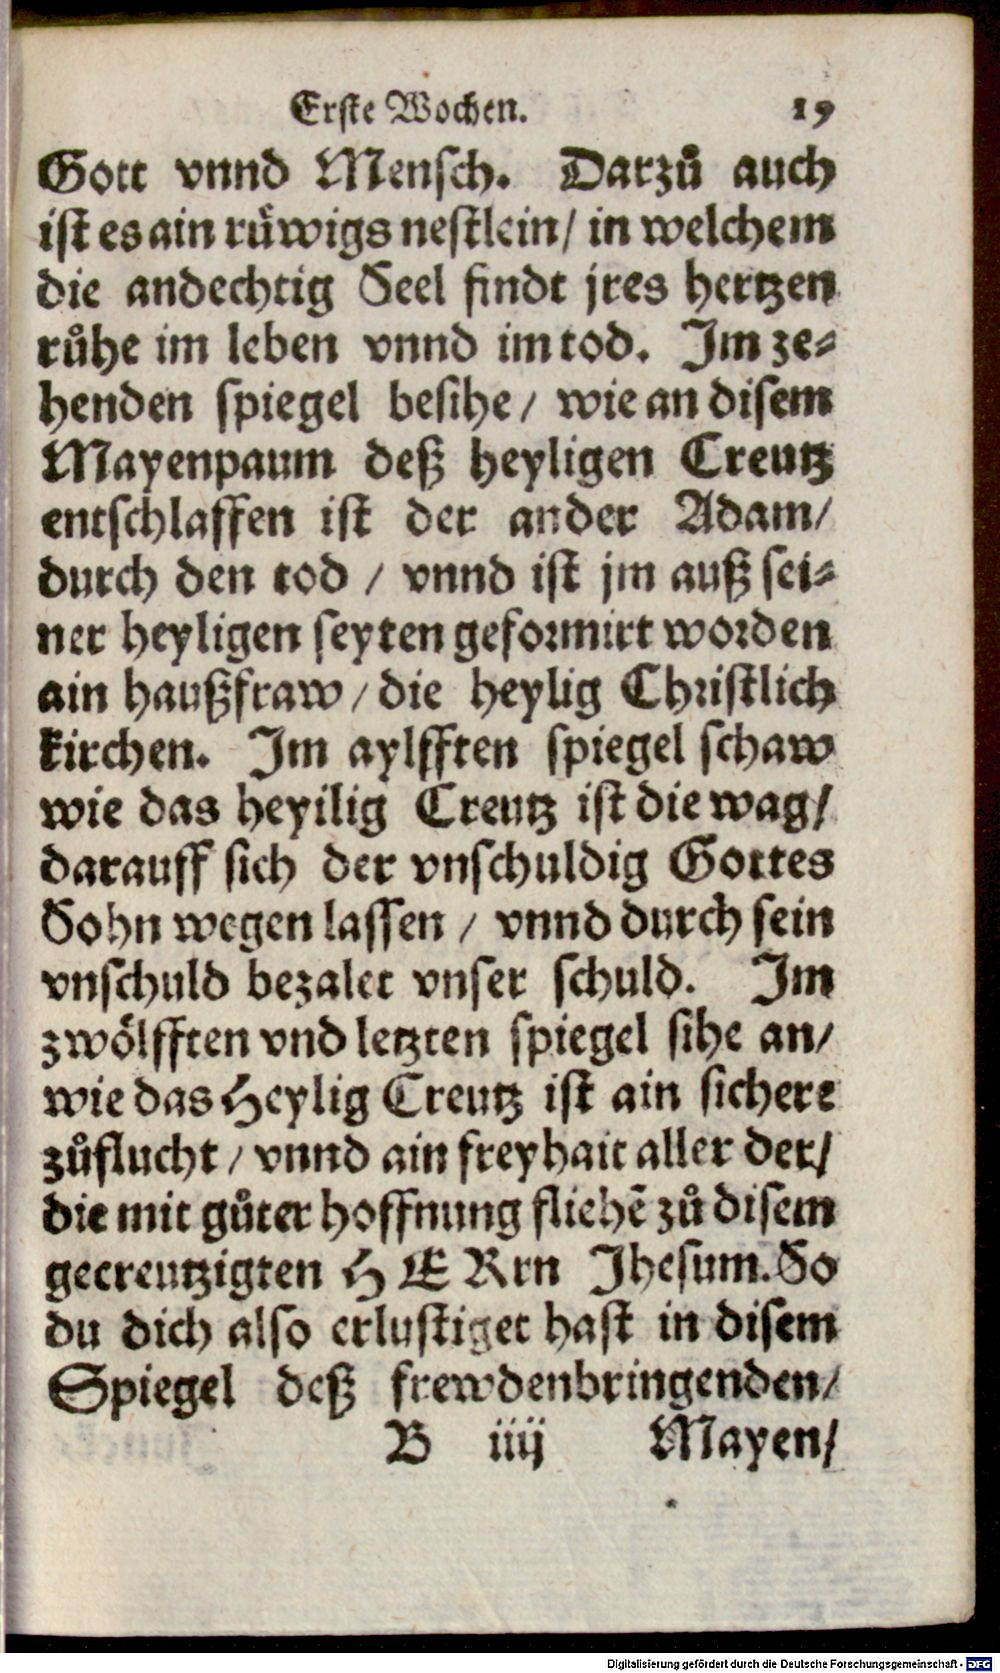 Erste Wochen. 19
Gott vnnd Mensch. Darzuͦ auch
ist es ain ruͤwigs nestlein/ in welchem
die andechtig Seel findt jres hertzen
ruͦhe im leben vnnd im tod. Im ze⸗
henden spiegel besihe/ wie an disem
Mayenpaum deß heyligen Creutz
entschlaffen ist der ander Adam/
durch den tod / vnnd ist jm auß sei⸗
ner heyligen seyten geformirt worden
ain haußfraw / die heylig Christlich
kirchen. Im aylfften spiegel schaw
wie das heyilig Creutz ist die wag/
darauff sich der vnschuldig Gottes
Sohn wegen lassen / vnnd durch sein
vnschuld bezalet vnser schuld. Im
zwoͤlfften vnd letzten spiegel sihe an/
wie das Heylig Creutz ist ain sichere
zuͦflucht / vnnd ain freyhait aller der/
die mit guͦter hoffnung fliehē zuͦ disem
gecreutzigten HERrn Jhesum. So
du dich also erlustiget hast in disem
Spiegel deß frewdenbringenden/
B iiij Mayen/
Digitalisierung gefördert durch die Deutsche Forschungsgemeinschaft - DFG